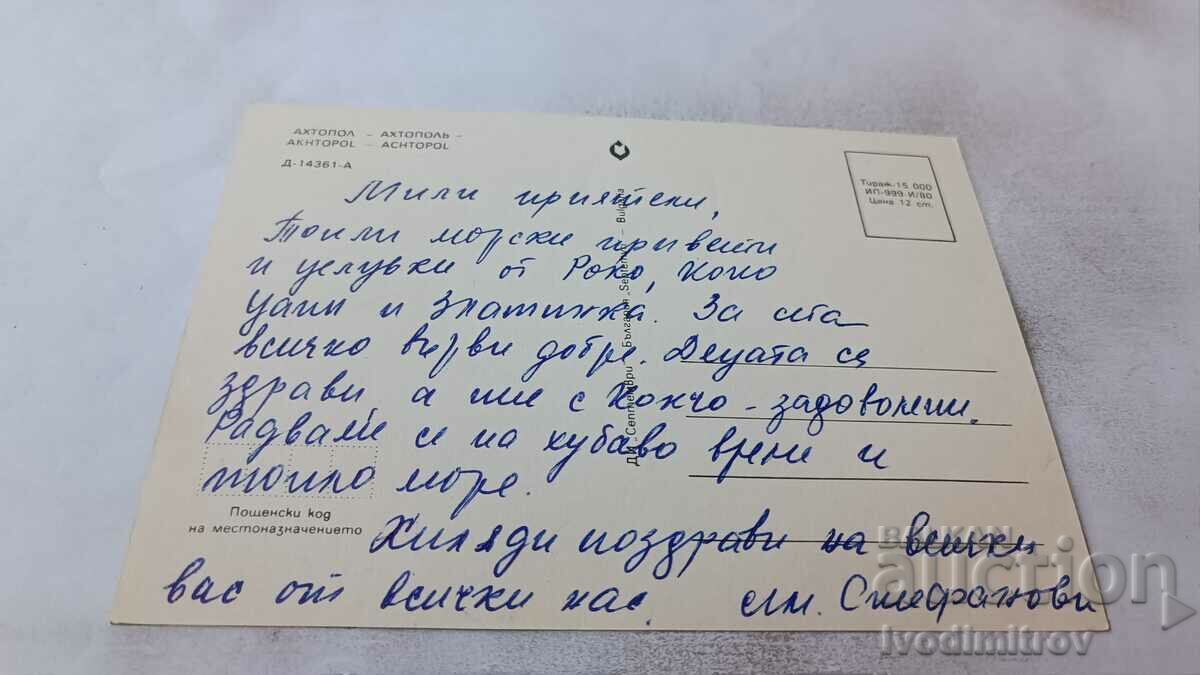 АХТОПОЛ – АХТОПОЛЬ –
AKHTOPOL – ACHTOPOL
Д-14361-А
Тираж 15 000
ИП-999-И/80
Цена 12 ст.
Мили приятели,
Топли морски привети
и целувки от Роко, Коко
Цаци и Златинка. За сега
всичко върви добре. Децата са
здрави а ние с Кончо – задоволени.
Радваме се на хубаво време и
топло море.
Хиляди поздрави на всички
вас от всички нас. сем. Стефанови
Пощенски код
на местоназначението
ДИ „Септември" България „Septemvri" – Bulgaria
BALKAN
auction
ivodimitrov